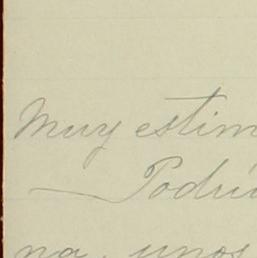 Muy estim
Podrí
na, unos